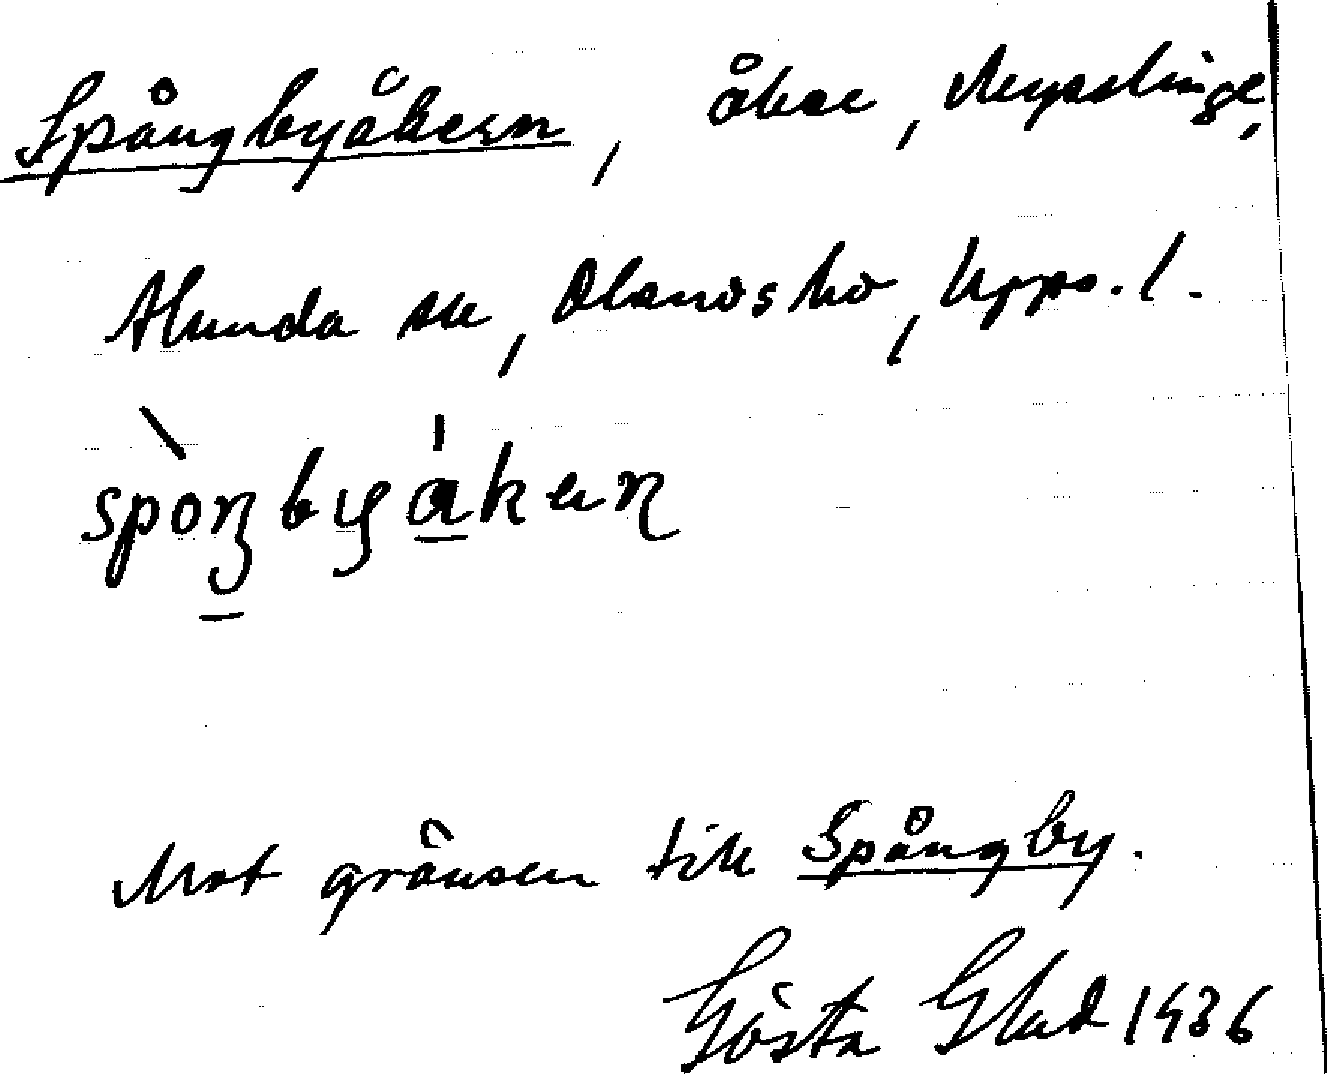 Spångbyåkern, åker, Mysslinge,
Alunda sn, Olands hd, Upps. l.
spòŋbyákeɳ
Mot gränsen till Spångby.
Gösta Glad 1936